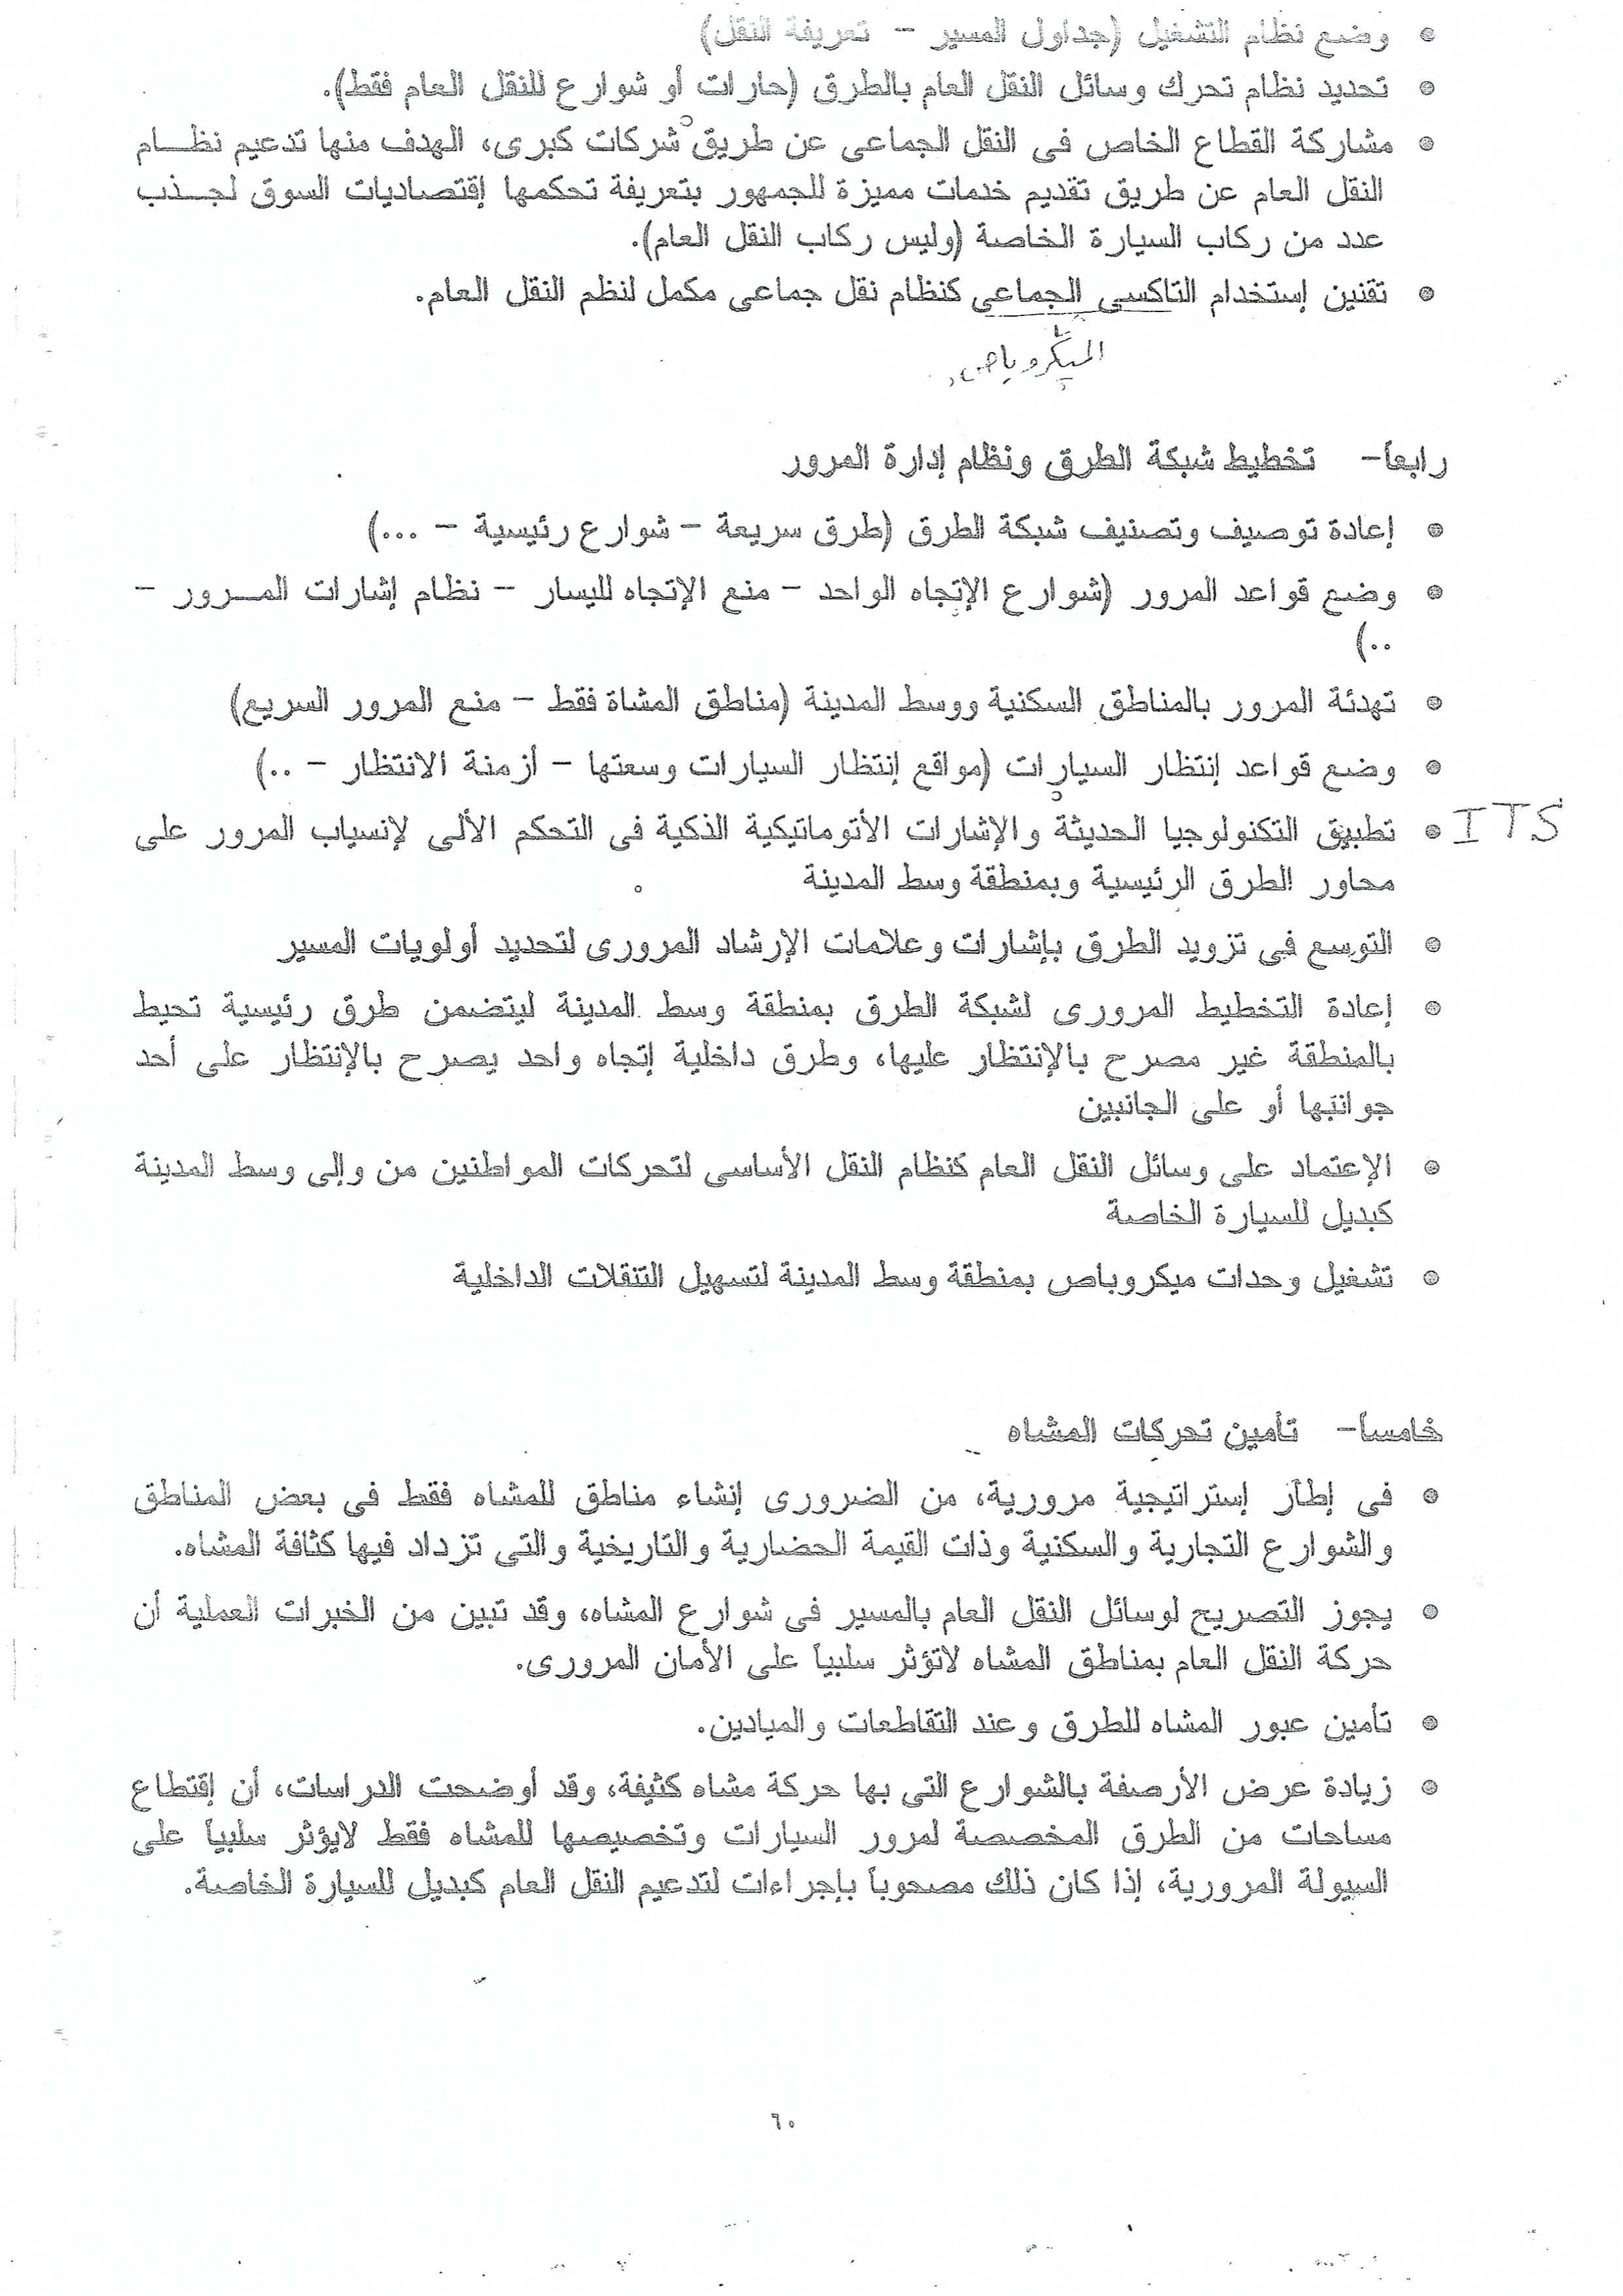 • وضع نظام التشغيل (جداول المسير – تعريفة النقل)
• تحديد نظام تحرك وسائل النقل العام بالطرق (حارات أو شوارع للنقل العام فقط).
• مشاركة القطاع الخاص فى النقل الجماعى عن طريق شركات كبرى، الهدف منها تدعيم نظام
النقل العام عن طريق تقديم خدمات مميزة للجمهور بتعريفة تحكمها إقتصاديات السوق لجذب
عدد من ركاب السيارة الخاصة (وليس ركاب النقل العام).
• تقنين إستخدام التاكسى الجماعى كنظام نقل جماعى مكمل لنظم النقل العام.
الميكروباص
رابعاً- تخطيط شبكة الطرق ونظام إدارة المرور
• إعادة توصيف وتصنيف شبكة الطرق (طرق سريعة – شوارع رئيسية – ...)
• وضع قواعد المرور (شوارع الإتجاه الواحد – منع الإتجاه لليسار – نظام إشارات المرور –
..)
• تهدئة المرور بالمناطق السكنية ووسط المدينة (مناطق المشاة فقط – منع المرور السريع)
• وضع قواعد إنتظار السيارات (مواقع إنتظار السيارات وسعتها – أزمنة الانتظار – ..)
ITS • تطبيق التكنولوجيا الحديثة والإشارات الأتوماتيكية الذكية فى التحكم الألى لإنسياب المرور على
محاور الطرق الرئيسية وبمنطقة وسط المدينة
• التوسع فى تزويد الطرق بإشارات وعلامات الإرشاد المرورى لتحديد أولويات المسير
• إعادة التخطيط المرورى لشبكة الطرق بمنطقة وسط المدينة ليتضمن طرق رئيسية تحيط
بالمنطقة غير مصرح بالإنتظار عليها، وطرق داخلية إتجاه واحد يصرح بالإنتظار على أحد
جوانبها أو على الجانبين
• الإعتماد على وسائل النقل العام كنظام النقل الأساسى لتحركات المواطنين من وإلى وسط المدينة
كبديل للسيارة الخاصة
• تشغيل وحدات ميكروباص بمنطقة وسط المدينة لتسهيل التنقلات الداخلية
خامساً- تأمين تحركات المشاه
• فى إطار إستراتيجية مرورية، من الضرورى إنشاء مناطق للمشاه فقط فى بعض المناطق
والشوارع التجارية والسكنية وذات القيمة الحضارية والتاريخية والتى تزداد فيها كثافة المشاه.
• يجوز التصريح لوسائل النقل العام بالمسير فى شوارع المشاه، وقد تبين من الخبرات العملية أن
حركة النقل العام بمناطق المشاه لاتؤثر سلبياً على الأمان المرورى.
• تأمين عبور المشاه للطرق وعند التقاطعات والميادين.
• زيادة عرض الأرصفة بالشوارع التى بها حركة مشاه كثيفة، وقد أوضحت الدراسات، أن إقتطاع
مساحات من الطرق المخصصة لمرور السيارات وتخصيصها للمشاه فقط لايؤثر سلبياً على
السيولة المرورية، إذا كان ذلك مصحوباً بإجراءات لتدعيم النقل العام كبديل للسيارة الخاصة.
٦٠